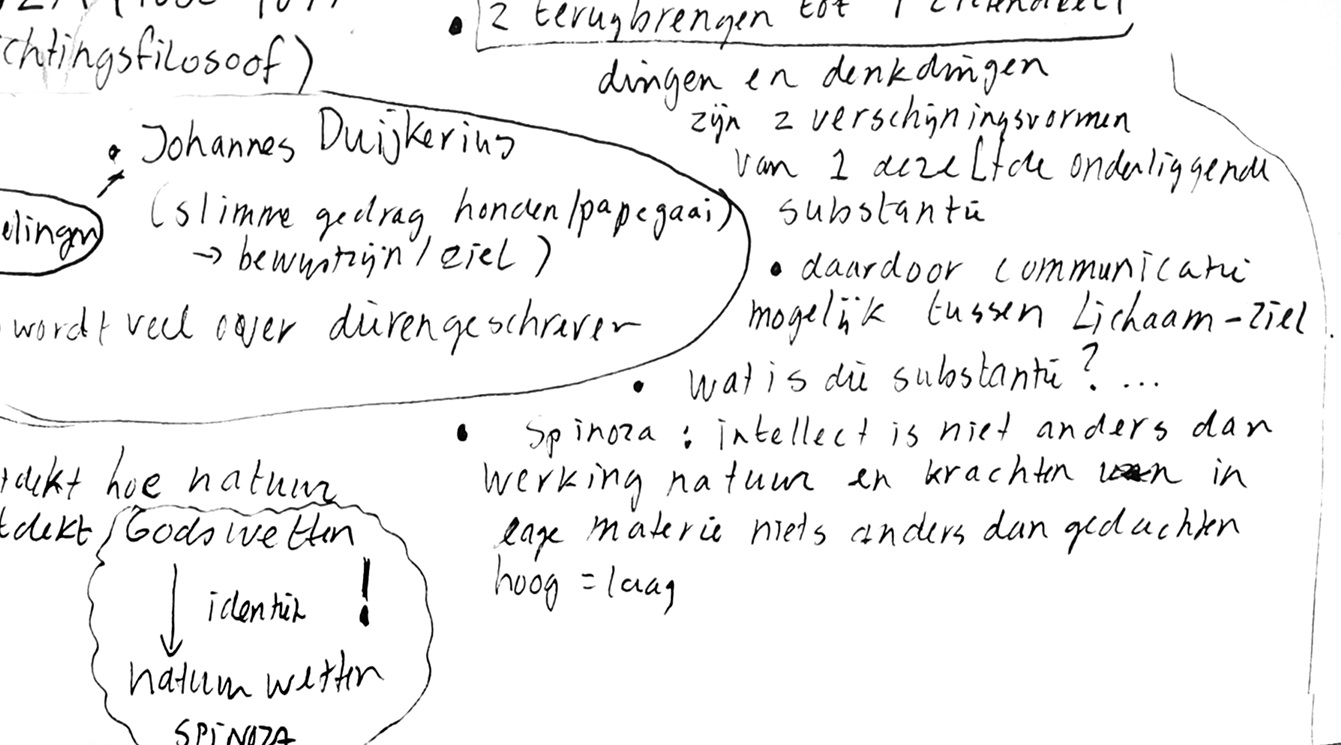 2 terugbrengen tot 1
chtingsfilosoof)
dingen en denkdingen
zijn 2 verschijningsvormen
van 1 dezelfde onderliggende
substantie
• Johannes Duijkerius
(slimme gedrag honden/papegaai)
→ bewustzijn / ziel)
elingen
wordt veel over dieren geschreven
• daardoor communicatie
mogelijk tussen Lichaam-ziel
• wat is die substantie? ...
• Spinoza: intellect is niet anders dan
werking natuur en krachten in
lage materie niets anders dan gedachten
hoog = laag
tdekt hoe natuur
tdekt Godswetten
↓ identiek !
natuurwetten
SPINOZA